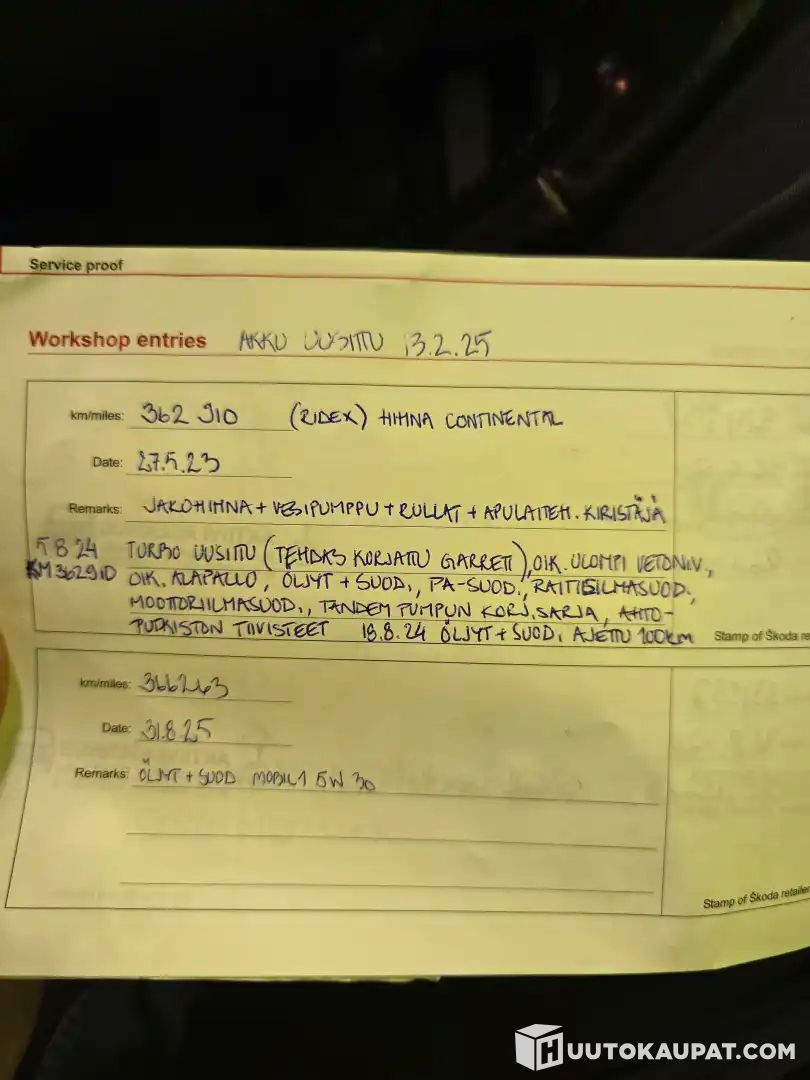 Service proof
Workshop entries AKKU UUSITTU 13.2.25
km/miles: 362 910 (RIDEX) HIHNA CONTINENTAL
Date: 27.5.23
Remarks: JAKOHIHNA + VESIPUMPPU + RULLAT + APULAITEH. KIRISTÄJÄ
5 8 24 TURBO UUSITTU (TEHDAS KORJATTU GARRETT), OIK. ULOMPI VETONIV.,
KM 362910 OIK. ALAPALLO, ÖLJYT + SUOD., PA-SUOD., RAITISILMASUOD.,
MOOTTORIILMASUOD., TANDEM PUMPUN KORJ.SARJA, AHTO-
PUTKISTON TIIVISTEET 18.8.24 ÖLJYT + SUOD. AJETTU 100km
Stamp of Škoda re
km/miles: 366263
Date: 31.8.25
Remarks: ÖLJYT + SUOD MOBIL1 5W 30
Stamp of Škoda retailer
HUUTOKAUPAT.COM